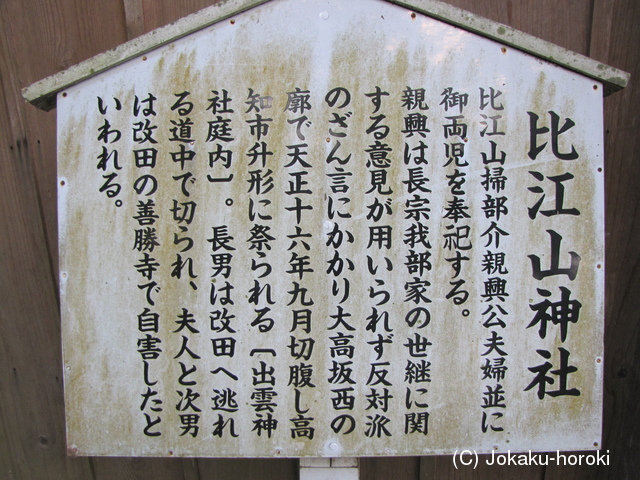 比江山神社
比江山掃部介親興公夫婦並に
御両児を奉祀する。
親興は長宗我部家の世継に関
する意見が用いられず反対派
のざん言にかかり大高坂西の
廓で天正十六年九月切腹し高
知市升形に祭られる〔出雲神
社庭内〕。長男は改田へ逃れ
る道中で切られ、夫人と次男
は改田の善勝寺で自害したと
いわれる。
(C) Jokaku-horoki